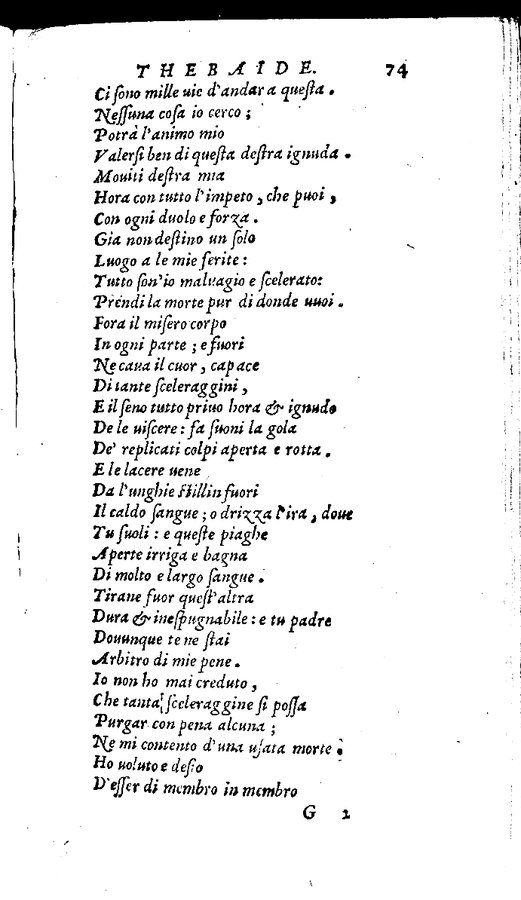 THEBAIDE. 74
Ci sono mille uie d'andar a questa.
Nessuna cosa io cerco;
Potrà l'animo mio
Valersi ben di questa destra ignuda.
Mouiti destra mia
Hora con tutto l'impeto, che puoi,
Con ogni duolo e forza.
Gia non destino un solo
Luogo a le mie ferite:
Tutto son'io maluagio e scelerato:
Prendi la morte pur di donde uuoi.
Fora il misero corpo
In ogni parte; e fuori
Ne caua il cuor, capace
Di tante sceleraggini,
E il seno tutto priuo hora & ignudo
De le uiscere: fa suoni la gola
De' replicati colpi aperta e rotta.
E le lacere uene
Da l'unghie stillin fuori
Il caldo sangue; o drizza l'ira, doue
Tu suoli: e queste piaghe
Aperte irriga e bagna
Di molto e largo sangue.
Tirane fuor quest'altra
Dura & inespugnabile: e tu padre
Douunque te ne stai
Arbitro di mie pene.
Io non ho mai creduto,
Che tanta sceleraggine si possa
Purgar con pena alcuna;
Ne mi contento d'una usata morte.
Ho uoluto e desio
D'esser di membro in membro
G 2